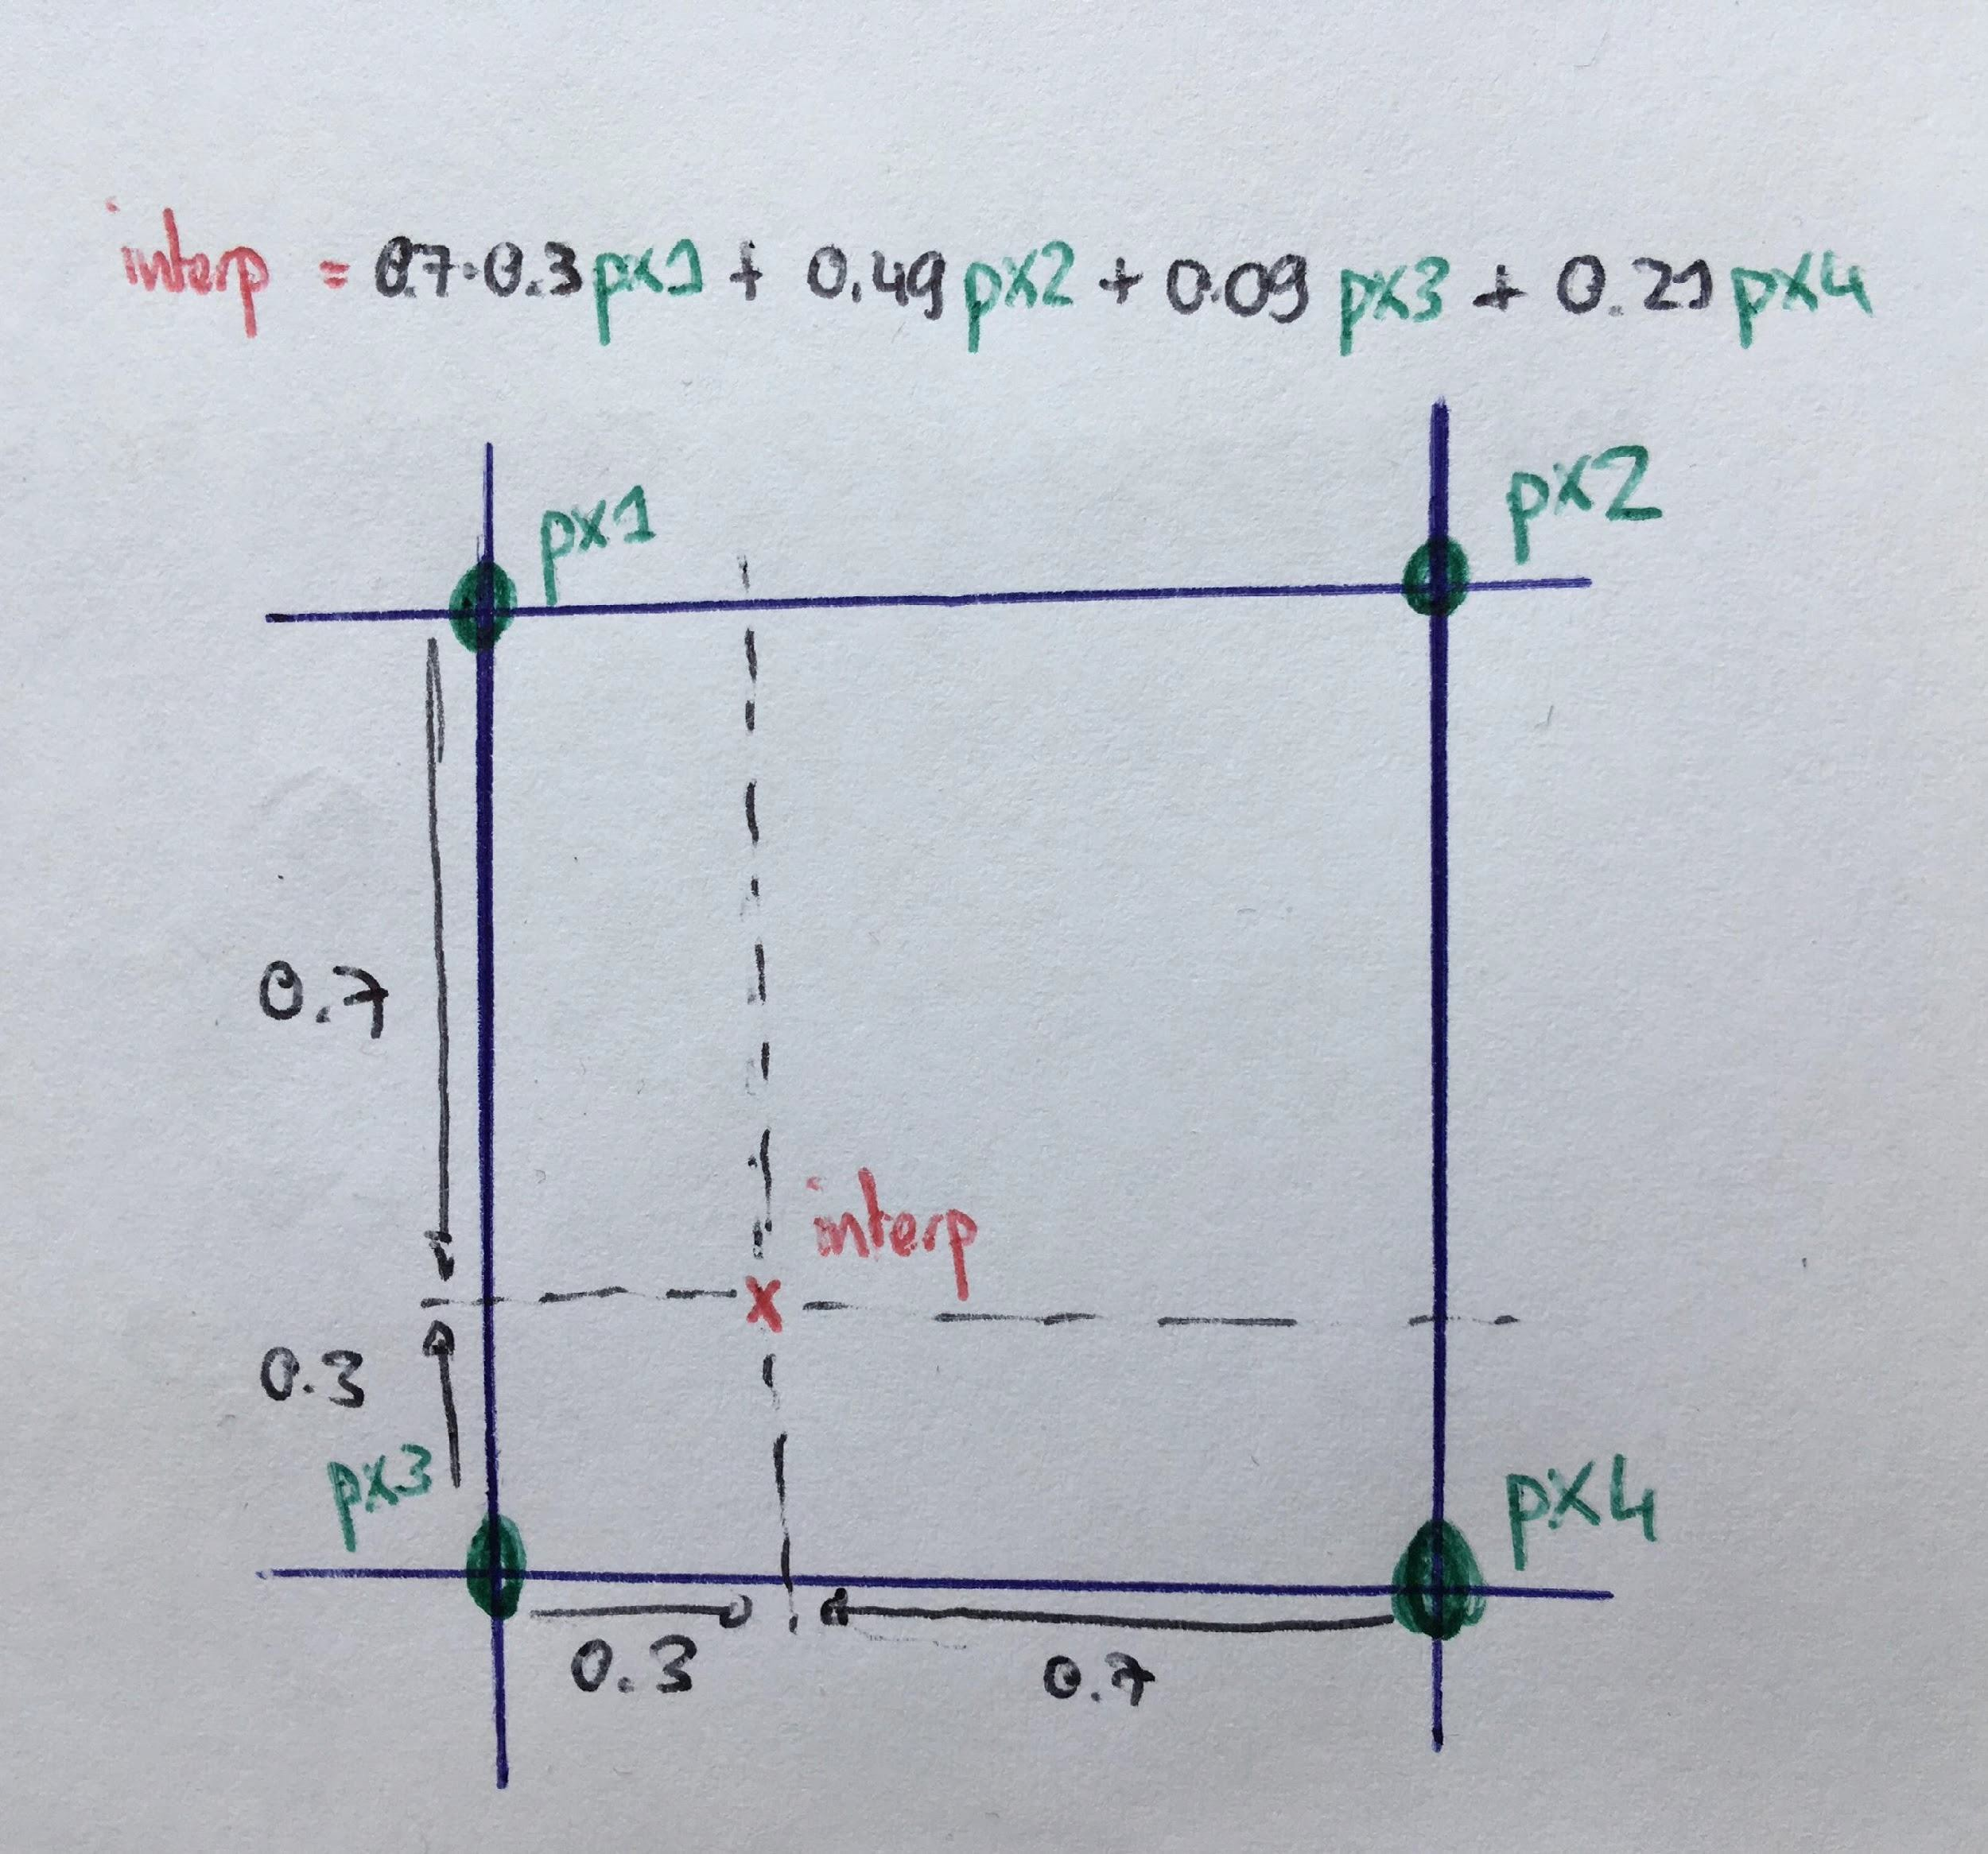 interp = 0.7·0.3px1 + 0.49px2 + 0.09px3 + 0.21px4
px1
px2
0.7
interp
0.3
px3
px4
0.3
0.7